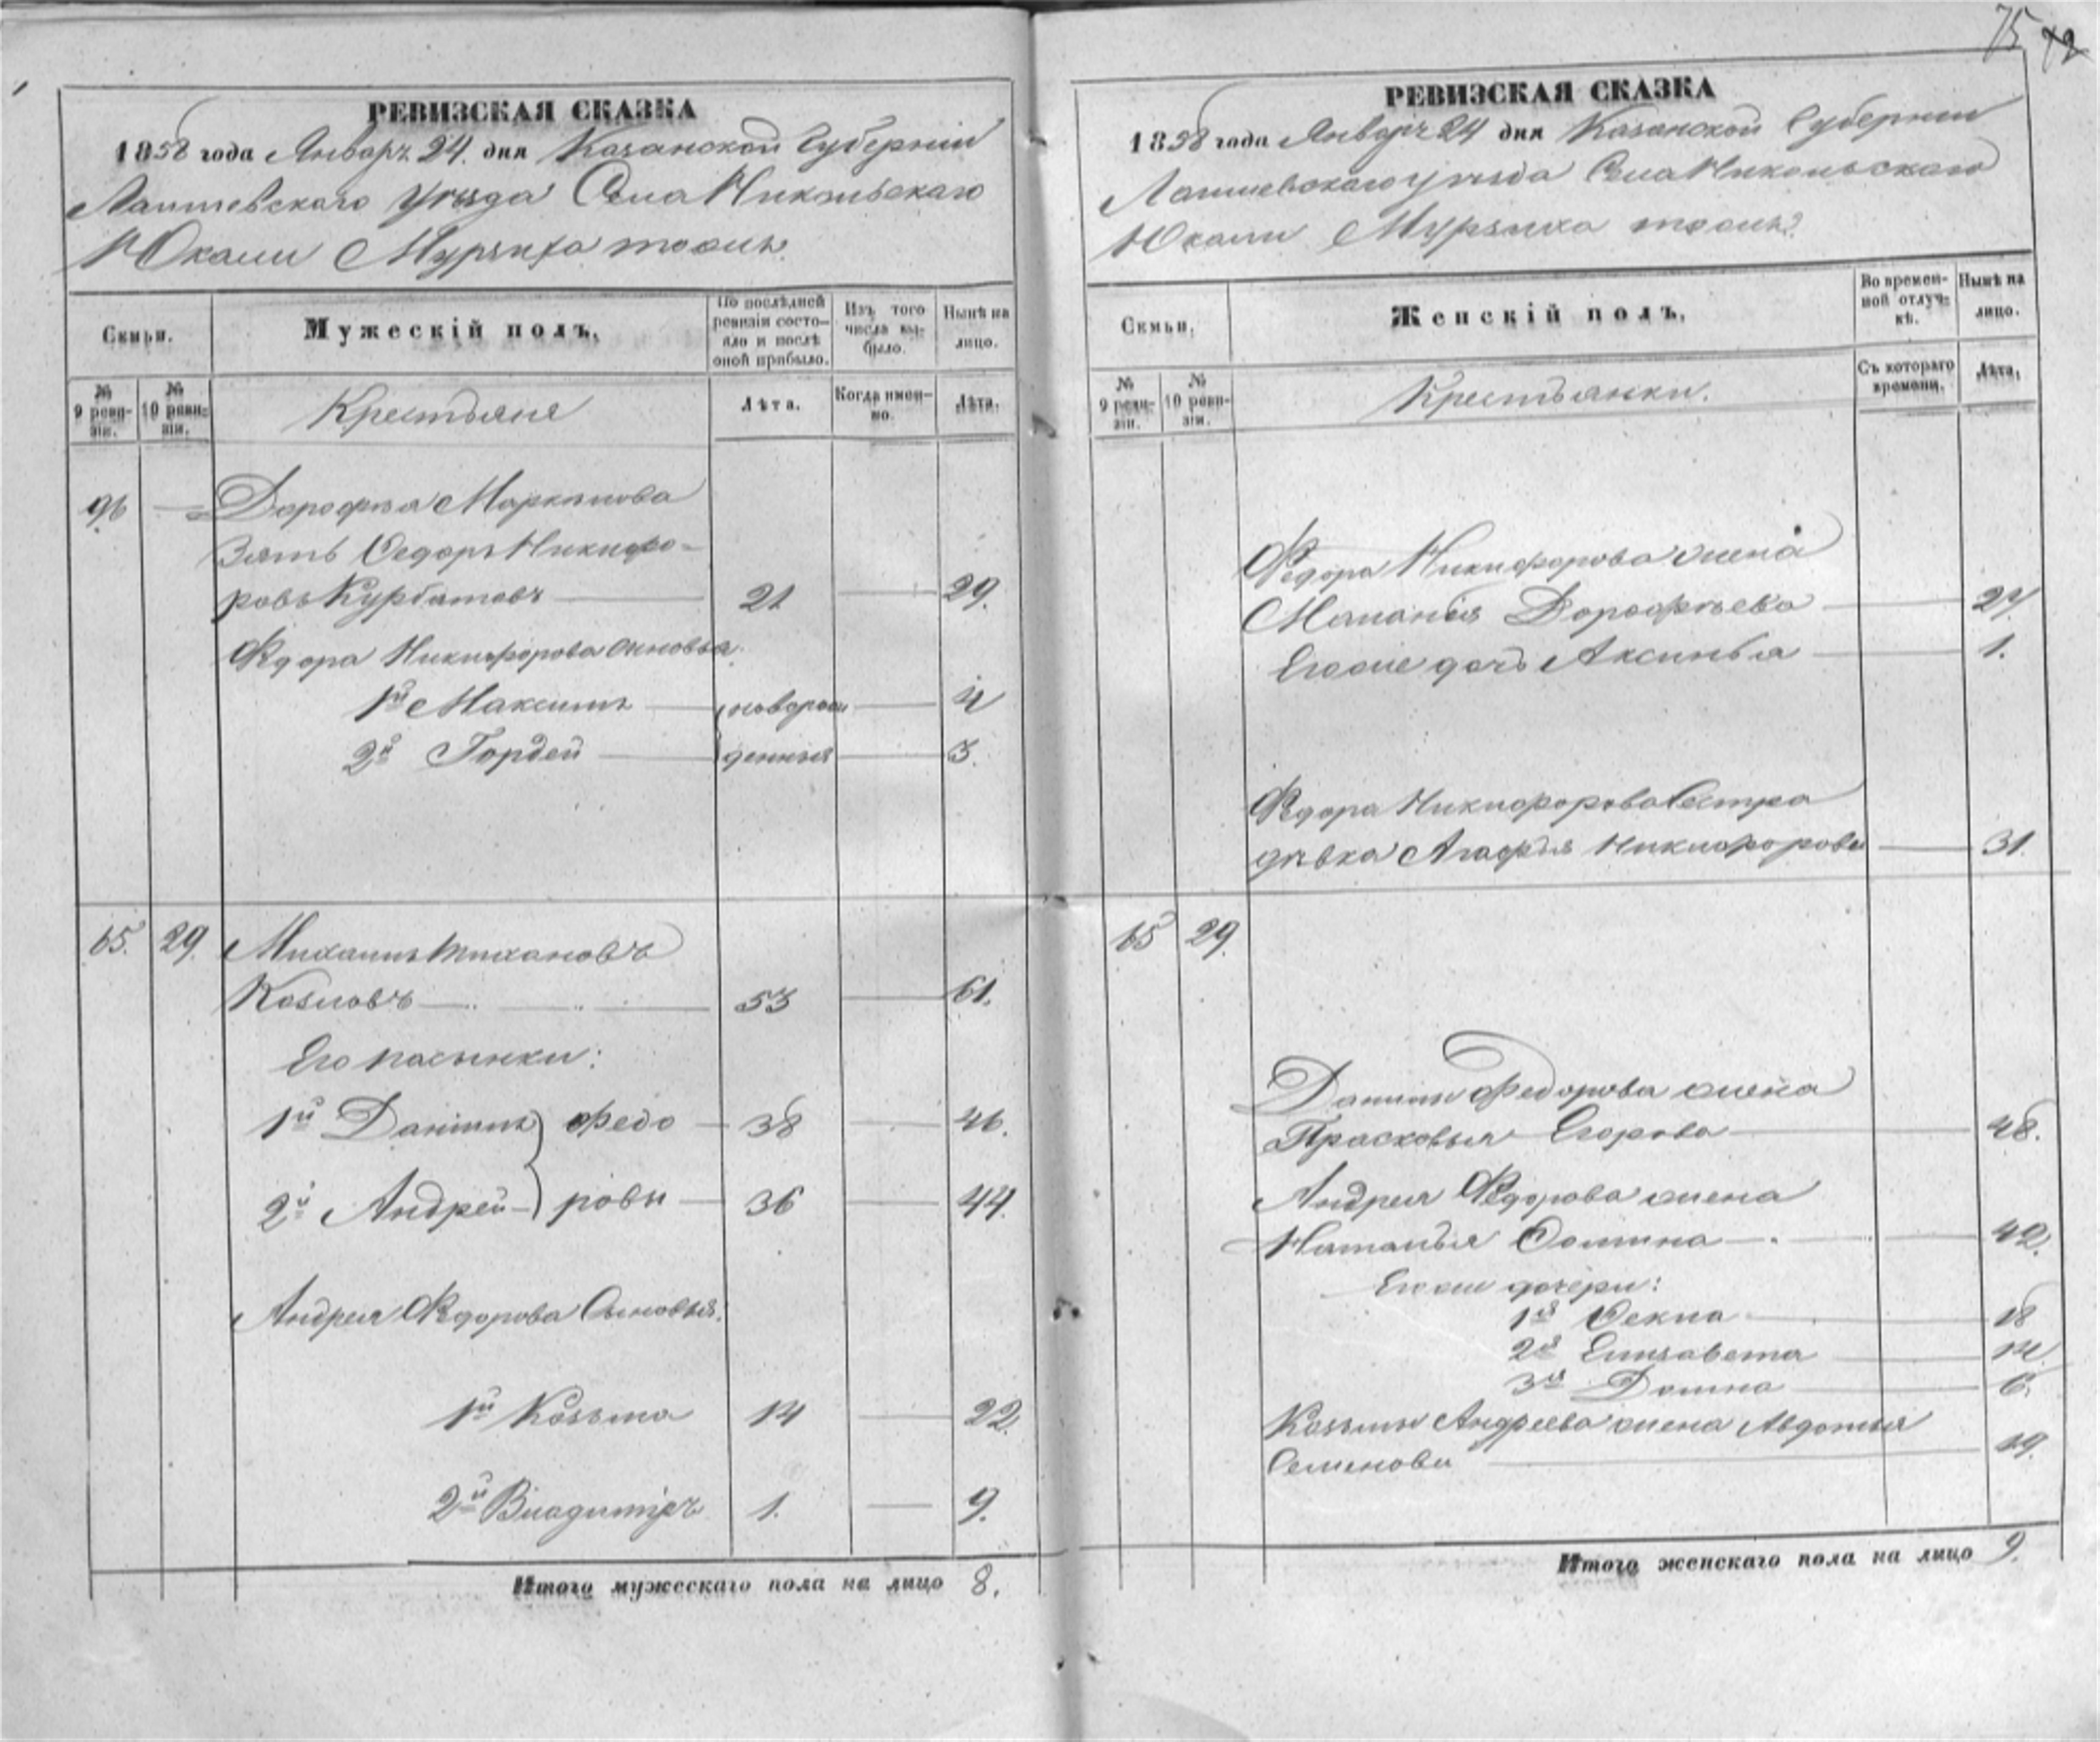 75 72
РЕВИЗСКАЯ СКАЗКА
1858 года Январь 24. дня Казанской Губерніи
Лаишевскаго Уѣзда Села Никольскаго
Юкачи Мурзиха тожъ.
Семьи.
Мужескій полъ.
По послѣдней ревизіи состояло и послѣ оной прибыло.
Изъ того числа выбыло.
Нынѣ на лицо.
№ 9 ревизіи.
№ 10 ревизіи.
Крестьяня
Лѣта.
Когда именно.
Лѣта.
96 Дорофѣя
Зять Федоръ Никифо-
ровъ Курбатовъ 21 29.
Федора Никифорова сыновья
1й Максимъ новорож 4
2й Гордей денныя 3.
65. 29. Михаилъ Тихановъ
Козловъ 53 61.
Его пасынки:
1й Данилъ Федо 38 46.
2й Андрей ровы 36 44.
Андрея Федорова Сыновья:
1й Козьма 14 22.
2й Владиміръ 1. 9.
Итого мужескаго пола на лицо 8.
РЕВИЗСКАЯ СКАЗКА
1858 года Январь 24 дня Казанской Губерніи
Лаишевскаго уѣзда Села Никольскаго
Юкачи Мурзиха тожъ.
Семьи.
Женскій полъ.
Во временной отлучкѣ.
Нынѣ на лицо.
№ 9 ревизіи.
№ 10 ревизіи.
Крестьянки.
Съ котораго времени.
Лѣта.
Федора Никифорова жена
Маланья Дорофѣева
Егоже дочь Аксинья 1.
Федора Никифорова Сестра
дѣвка Агафья Никифорова 31.
65 29.
Данилы Федорова жена
Прасковья Егорова 48.
Андрея Федорова жена
Наталья Фомина 42.
Егоже дочери:
1я Фекла 18
2я Елизавета 14
3я Домна 6.
Козьмы Андреева жена Авдотья
Семенова 19.
Итого женскаго пола на лицо 9.